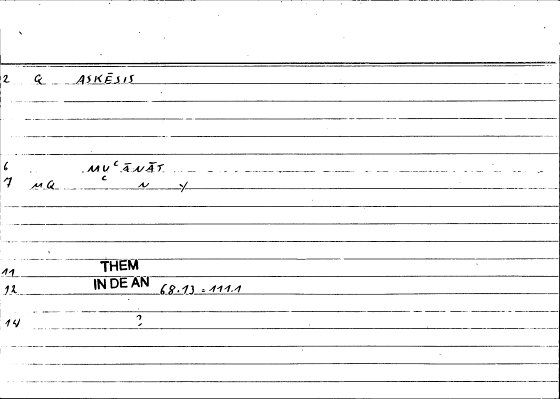 2 Q ASKĒSIS
6 MUᶜĀNĀT
7 MQ C N Y
11 THEM
12 IN DE AN 68.13 = 111.1
14 ?